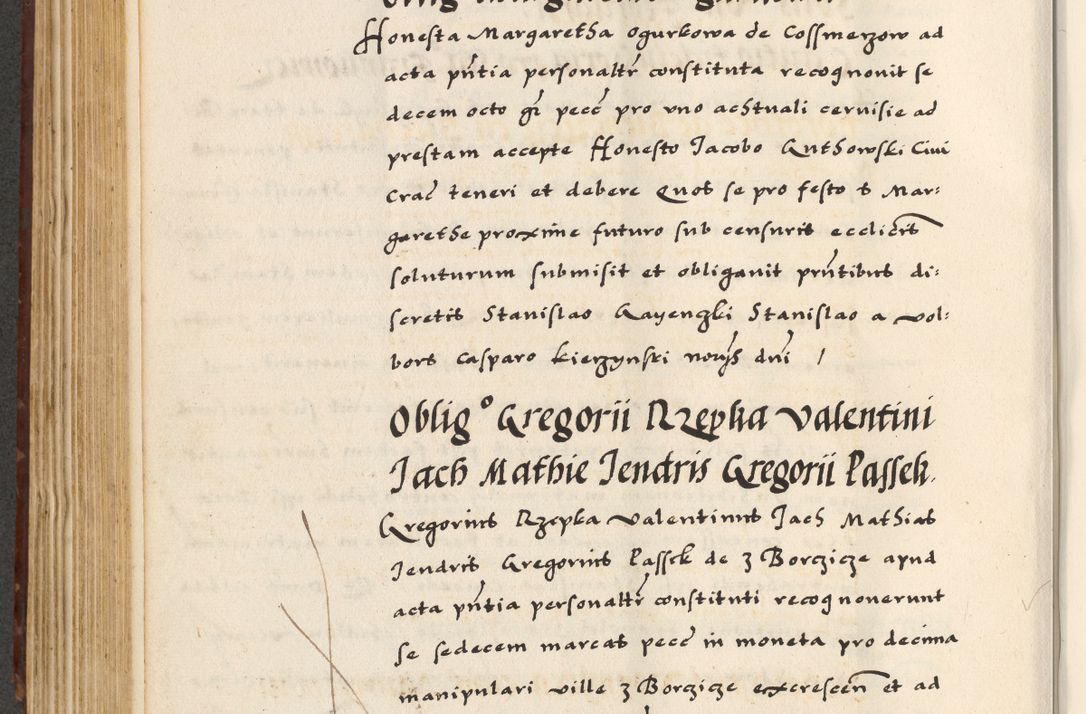 Honesta Margaretha ogurkowa de Cossmerzow ad
acta pñtia personalr̃ constituta recognouit se
decem octo gř pecč pro vno achtuali ceruisie ad
prestam accepte Honesto Jacobo Guthowski Ciui
Crač teneri et debere Quos se pro festo S Mar:
garethe proxime futuro sub censuris ecclicis
soluturum submisit et obligauit prñtibus di:
scretis Stanislao Stanislao a vol:
bors Casparo kierzynski norijs dñi /
Oblig° Gregorii Rzepka Valentini
Jach Mathie Jendris Gregorii Passek.
Gregorius Rzepka Valentinus Jach Mathias
Jendris Gregorius Passek de 3 Borczicze apud
acta pñtia personalr̃ constituti recognouerunt
se sedecem marcas pecč in moneta pro decima
manipulari ville 3 Borczicze excrescen̄ et ad